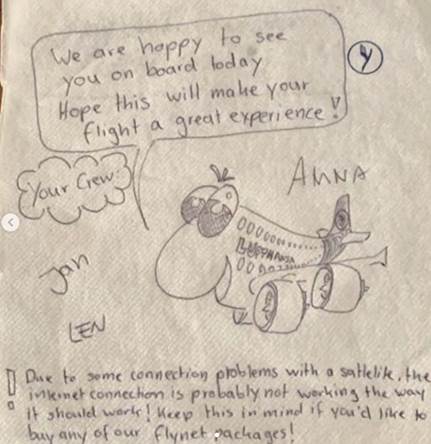 We are happy to see
you on board today
Hope this will make your
flight a great experience!
y
Your Crew:
ANNA
LUFTHANSA
Jan
LEN
! Due to some connection problems with a satlelite, the
internet connection is probably not working the way
it should work! Keep this in mind if you'd like to
buy any of our flynet packages!